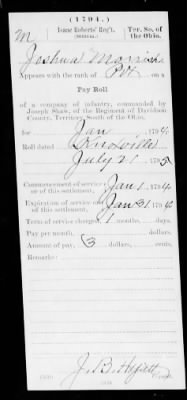 (1794.)
M
Isaac Roberts' Reg't.
(MILITIA.)
Ter. So. of
the Ohio.
Joshua
Appears with the rank of Pvt. on a
Pay Roll
of a company of infantry, commanded by
Joseph Shaw, of the Regiment of Davidson
County, Territory, South of the Ohio.
for Jan , 179
Roll dated Knoxville
July 21 , 1795
Commencement of service or of this settlement, Jan 1 , 179
Expiration of service or of this settlement, Jan 31 , 179
Term of service charged, 1 months, days.
Pay per month, dollars, cents.
Amount of pay, 3 dollars, cents.
Remarks:
J. B.